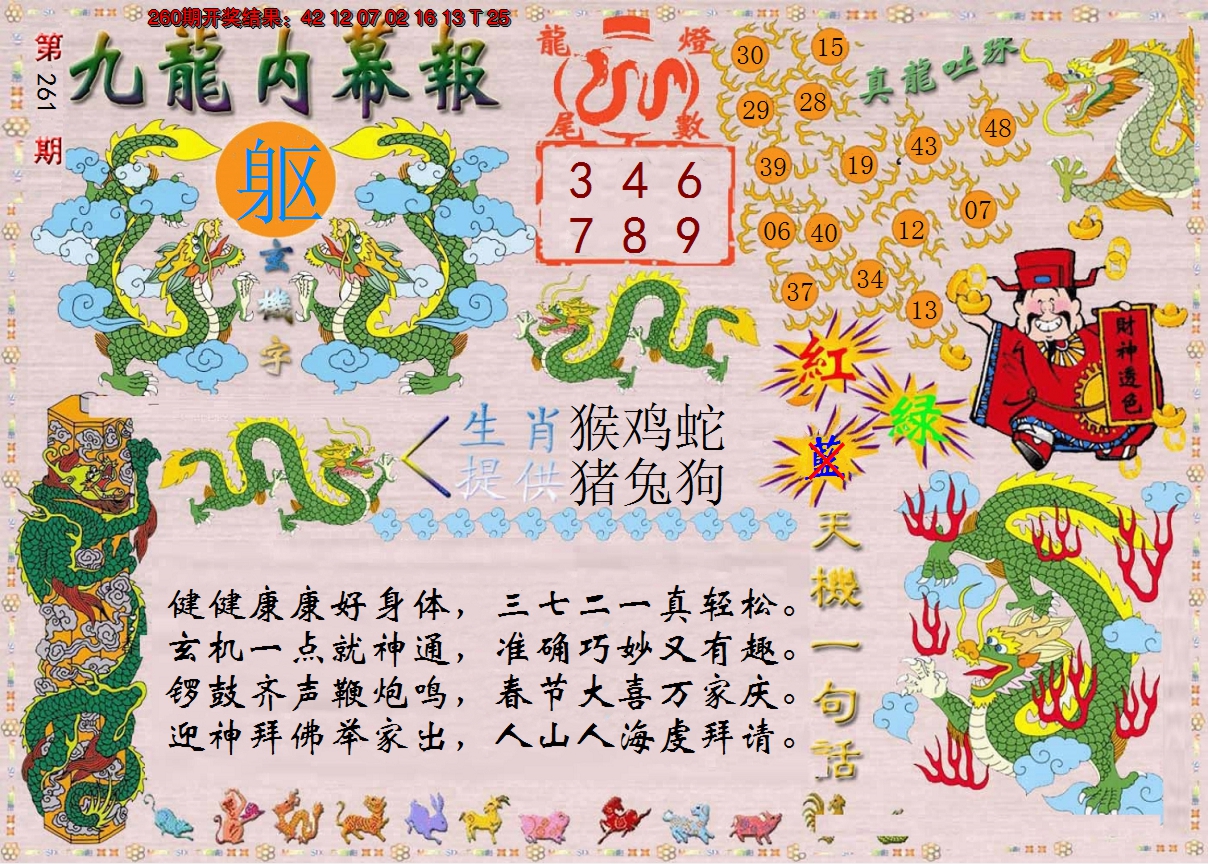 260期开奖结果：42 12 07 02 16 13 T 25
第261期
九龍内幕報
躯
玄機字
龍燈
尾數
3 4 6
7 8 9
真龍吐珠
30 15
29 28
39 19 43 48
06 40 12 07
37 34 13
紅
綠
藍
財神透色
生肖 猴鸡蛇
提供 猪兔狗
天機一句話
健健康康好身体，三七二一真轻松。
玄机一点就神通，准确巧妙又有趣。
锣鼓齐声鞭炮鸣，春节大喜万家庆。
迎神拜佛举家出，人山人海虔拜请。